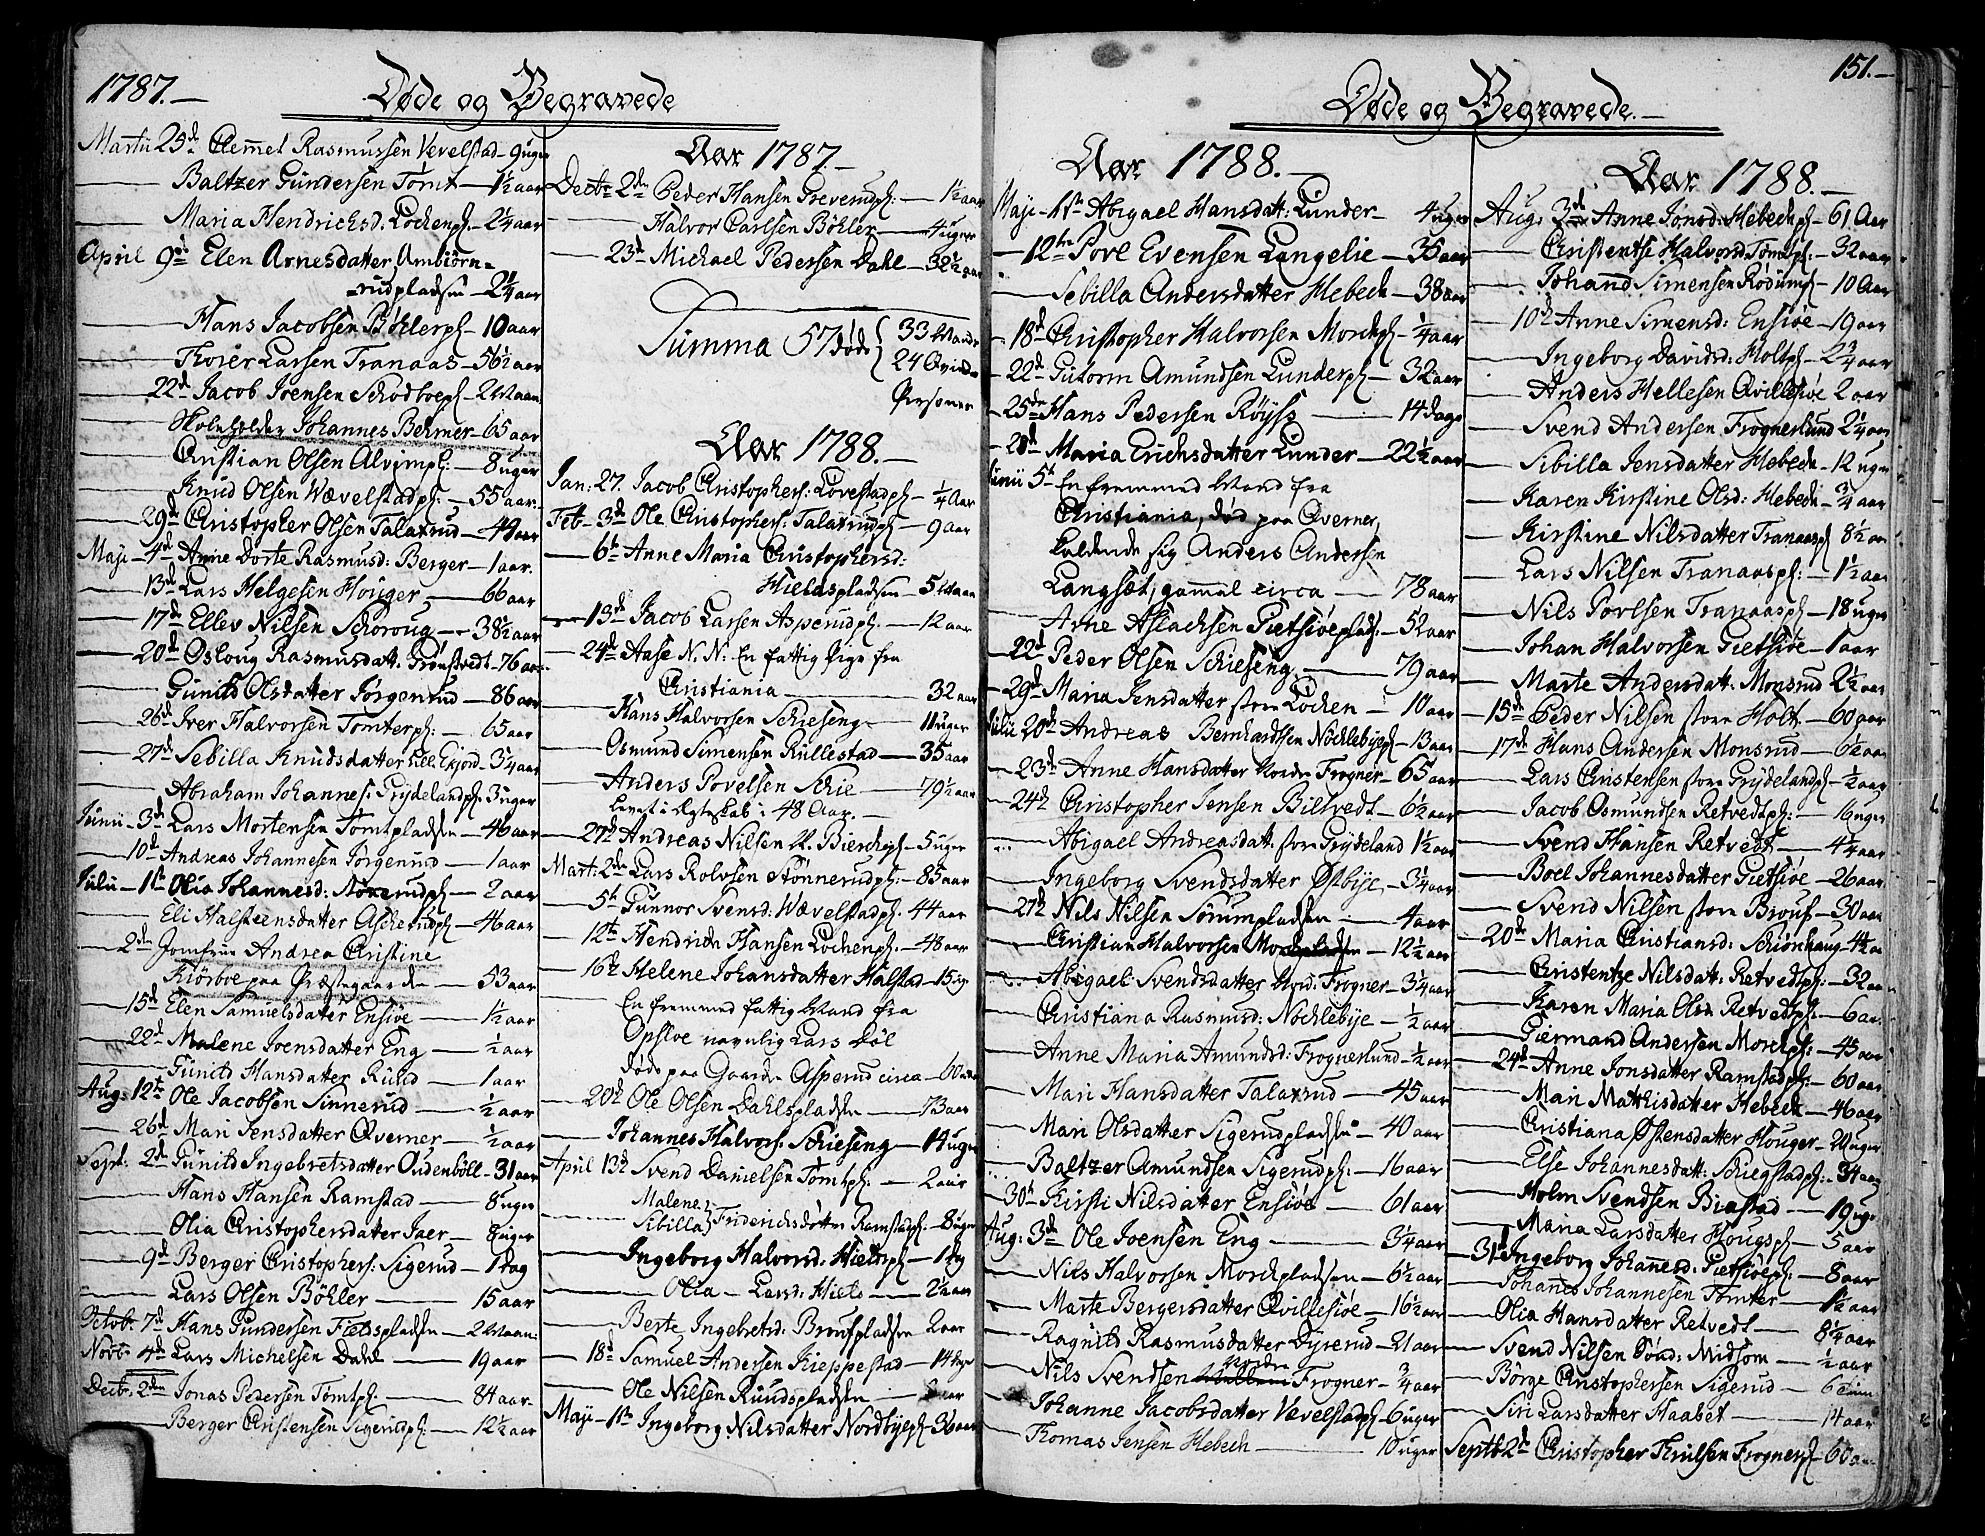 1787.
Døde og Begravede
Martii 29d Clemmet Rasmussen Vevelstad - 9 uger
Baltzer Gundersen Tomt - 1½ aar
Maria Hendrichsd: Lochenpl. - 2¼ aar
April 9d Elen Arnesdatter Ambiørn=
rudpladsen - 2¼ aar
Hans Jacobsen Bøhlerpl - 10 aar
Thoier Larsen Tranaas - 56½ aar
22d Jacob Joensen Schodboepl - 2 Maan
Skoleholder Johannes Behmer - 65 aar
Christian Olsen Alvimpl: - 8 uger
Knud Olsen Wævelstadpl: - 55 aar
29d Christopher Olsen Talaxrud - 49 aar
Maji - 4d Anne Dorte Rasmusd: Berger - 1 aar.
13d Lars Helgesen Houger - 66 aar
17d Ellev Nilsen Schoroug - 38½ aar
20d Osloug Rasmusdatt: Grønstvedt - 76 aar
Gunild Olsdatter Jørgenrud - 86 aar
26d Iver Halvorsen Tomterpl: - 65 aar
27d Sebilla Knudsdatter Lille Exjord - 3¼ aar
Abraham Johannes: Prydelandpl: 3 uger
Junii - 3d Lars Mortensen Tomtpladsen - 46 aar
10d Andreas Johannesen Jørgenrud - 1 aar
Julii - 1te Olia Johannesd: - 2 aar
Eli Halsteensdatter Ascherudpl - 46 aar
2den Jomfrue Andrea Christine
Kiørboe paa Præstegaarden - 53 aar
15d Elen Samuelsdatter Ensiøe - 1½ aar
22d Malene Joensdatter Eng - ½ aar
Gunild Hansdatter Ruud - 1 aar
Aug: 12te Ole Jacobsen Sinnerud - ½ aar
26d Mari Jensdatter Qverner - ½ aar
Sept: 2d Gunild Ingebretsdatter Oudenböll - 31 aar
Hans Hansen Ramstad - 8 uger
Olia Christophersdatter Jaer - 8 uger
9d Berger Christophers: Sigerud - 1 dag
Lars Olsen Bøhler - 15 aar
Octob: 7d Hans Gundersen Fietspladsen - 2 Maan:
Novb: 4d Lars Michelsen Dahl - 19 aar
Decb: 2den Jonas Pedersen Tomtpl: - 84 aar
Berger Christensen Sigerudpl: - 12½ aar
Aar 1787.
Decbr 2den Peder Hansen Greverudpl: - 1½ aar
Halvor Carlsen Bøhler - 4 uger
23d Michael Pedersen Dahl - 32½ aar
Summa 57 døde { 33 Mand
24 Qvinde
Personer
Aar 1788.
Jan: 27. Jacob Christophers: Lovestadpl - ¼ Aar
Feb - 3d Ole Christophers: Talaxrudpl - 9 aar
6te Anne Maria Christophersd:
Hiebaspladsen - 5 Maan
13d Jacob Larsen Asperudpl: - 12 aar
24d Aase N. N: En fattig Pige fra
Christiania - 32 aar
Hans Halvorsen Schieseng - 11 uger
Osmund Simensen Rullestad - 35 aar
Anders Povelsen Schie - 79½ aar
levet i Egteskab i 48 Aar.
27d Andreas Nilsen - 5 uger
Mart: 2den Lars Rolvsen Stønnerudpl: - 85 aar
5te Gunnor Svensd: Wævelstadpl: 44 aar
12te Hendrich Hansen Lochenpl: - 48 aar
16d Helene Johansdatter Halstad - 15 ug
En fremmed fattig Mand fra
Opsloe navnlig Lars Døl
døde paa Gaarden Asperud circa - 60 aar
20d Ole Olsen Dahlspladsen - 73 aar
Johannes Halvors: Schieseng - 14 uger
April 13d Svend Danielsen Tomtpl: - 2 aar
Malene
Sibilla } Friderichsdøtter Ramstadpl - 8 uger
Ingeborg Halvorsd: Hieltspl - 1 dg
Olia - Larsd: Hiels - 2½ aar
Berte Ingebretsd: Broutpladsen 2 aar
18d Samuel Andersen Kieppestad - 14 dage
Ole Nilsen Ruudspladsen - aar
Maji - 1te Ingeborg Nilsdatter Nordbyepl - 36 aar
151.
Døde og Begravede.
Aar 1788.
Maji - 11te Abigael Hansdatt: Lunder - 4 uger
12te Povl Evensen Langelie - 35 aar
Sebilla Andersdatter Hebech - 38 aar
18d Christopher Halvorsen Morchpl - ¼ aar
22d Gutorm Amundsen Lunderpl - 32 aar
25de Hans Pedersen Röyss - 14 dage
28d Maria Erichsdatter Lunder - 22½ aar
Junii 5te En fremmed Mand fra
Christiania, død paa Qverner,
kaldende sig Anders Andersen
Langsæt, gammel circa - 78 aar
Arne Aslachsen Pietsiøeplads: - 52 aar
22d Peder Olsen Schieseng - 79 aar
29d Maria Jensdatter store Lochen - 10 aar
Julii 20d Andreas Bernhardtsen Nöchlebyepl - 13 aar
23d Anne Hansdatter Nordre Frogner - 65 aar
24d Christopher Jensen Biltvedt - 6½ aar
Abigael Andreasdatt: store Prydeland 1½ aar
Ingeborg Svendsdatter Østbye - 3¼ aar
27d Nils Nilsen Sörumpladsen - 4 aar
Christian Halvorsen Morchpladsen - 12½ aar
Abigael Svendsdatter Nord: Frogner - 3¼ aar
Christiana Rasmusd: Nöchlebye - ½ aar
Anne Maria Amundsd: Frognerlund - ½ aar
Mari Hansdatter Talaxrud - 45 aar
Mari Olsdatter Sigerudpladsen - 40 aar
Baltzer Amundsen Sigerudpl: - 16 aar
30te Kirsti Nilsdatter Ensiøe - 61 aar
Aug: 3d Ole Joensen Eng - 3¼ aar
Nils Halvorsen Morchpladsen - 6½ aar
Marte Bergersdatter Qvillesiøe - 16½ aar
Ragnild Rasmusdatter Dyrerud - 21 aar
Nils Svendsen nordre Frogner - ¾ aar
Johanne Jacobsdatter Vævelstadpl - 6 uger
Thomas Jensen Hebech - 10 uger
Aar 1788.
Aug: 3d Anne Jonsd: Hebechpl - 61 Aar
Christentse Halvorsd: Tomtpl: - 32 aar
Johannes Simensen Rödumpl - 10 Aar
10d Anne Simensd: Ensiøe - 19 aar
Ingeborg Davidsd: Holtpl - 2¾ aar
Anders Hellesen Qvillesiøe 2 aar
Svend Andersen Frognerlund 2¼ aar
Sibilla Jensdatter Hebech - 12 uger
Karen Kirstine Olsd: Hebech - ¾ aar
Kirstine Nilsdatter Tranaaspl 8½ aar
Lars Nilsen Tranaaspl: - 1½ aar
Nils Povlsen Tranaaspl - 18 uger
Johan Halvorsen Gietsiøe - 1 aar
Marte Andersdatt: Monsrud 2½ aar
15de Peder Nilsen store Holt - 60 aar
17de Hans Andersen Monsrud - 6½ aar
Lars Christensen store Prydelandpl - ½ aar
Jacob Osmundsen Retvedtpl: - 16 uger
Svend Hansen Retvedt - 4¼ aar
Boel Johannesdatter Gietsiøe - 26 aar
Svend Nilsen store Brout - 30 aar
20de Maria Christiansd: Schiønhaug - 4½ a
Christentze Nilsdat: Retvedtpl: - 32 aar
Karen Maria Olsd: Retvedtpl - 6 aar
Giermand Andersen Morchpl: - 45 aar
24d Anne Jonsdatter Ramstadpl: - 60 aar
Mari Matthisdatter Hebech - 46 aar
Christiana Østensdatter Houger - 20 uger
Else Johannesdatt: Schiegstadpl: - 34 aar
Holm Svendsen Biøstad - 19 uge
Maria Larsdatter Hougspl - 5 aar
31d Ingeborg Johannesd: Pietsiøepl: - 8 aar
Johanes Johannesen Tomter - 1½ aar
Olia Hansdatter Retvedt - 8¼ aar
Svend Nilsen Sønd: Midsom - ½ aar
Börge Christophersen Sigerud - 6
Siri Larsdatter Haabet - 14 aar
Septb 2d Christopher Knilsen Frognerpl - 60 aar